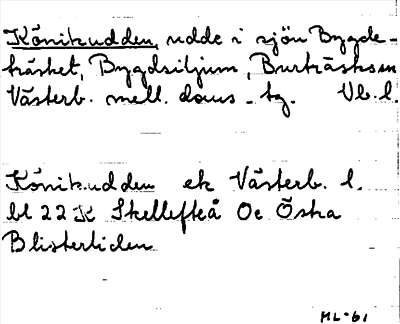 Könikudden, udde i sjön Bygde-
träsket, Bygdsiljum, Burträsks sn
Västerb. mell. doms. tg. Vb. l.
Könikudden ek Västerb. l.
bl 22 K Skellefteå Oc Östra
Blisterliden
ML-61